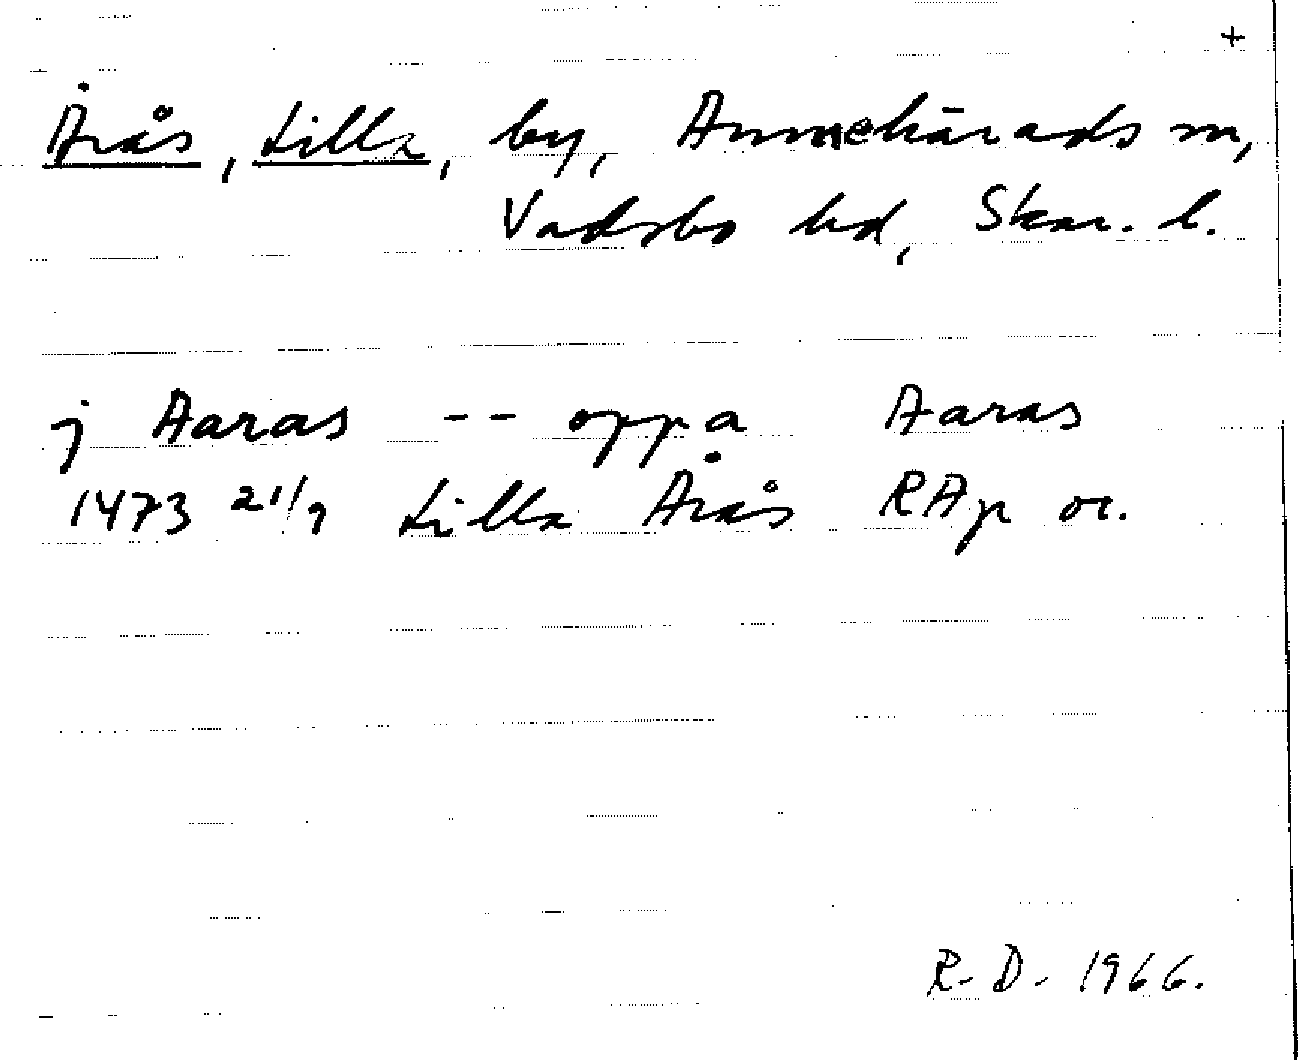 +
Årås, Lilla, by, Amnehärads sn,
Vadsbo hd, Skar. l.
j Aaras -- oppa Aaras
1473 21/9 Lilla Årås RAp or.
R. D. 1966.